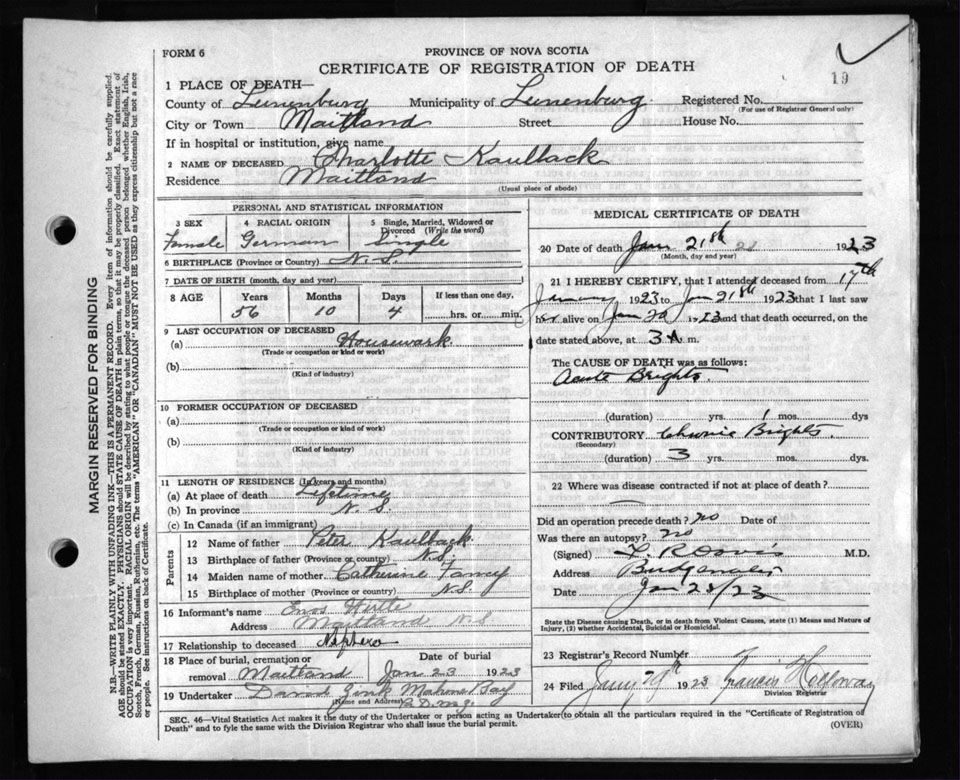 FORM 6
PROVINCE OF NOVA SCOTIA
CERTIFICATE OF REGISTRATION OF DEATH
19
1 PLACE OF DEATH—
County of Lunenburg Municipality of Lunenburg Registered No.
(For use of Registrar General only)
City or Town Maitland Street House No.
If in hospital or institution, give name
2 NAME OF DECEASED Charlotte Kaulback
Residence Maitland
(Usual place of abode)
PERSONAL AND STATISTICAL INFORMATION
3 SEX 4 RACIAL ORIGIN 5 Single, Married, Widowed or Divorced (Write the word)
Female German Single
6 BIRTHPLACE (Province or Country) N.S.
7 DATE OF BIRTH (month, day and year)
8 AGE Years Months Days If less than one day,
56 10 4 hrs. or min.
9 LAST OCCUPATION OF DECEASED
(a) Housework
(Trade or occupation or kind or work)
(b)
(Kind of industry)
10 FORMER OCCUPATION OF DECEASED
(a)
(Trade or occupation or kind or work)
(b)
(Kind of industry)
11 LENGTH OF RESIDENCE (In years and months)
(a) At place of death Lifetime
(b) In province N.S.
(c) In Canada (if an immigrant)
Parents
12 Name of father Peter Kaulback
13 Birthplace of father (Province or country) N.S.
14 Maiden name of mother Catherine Fancy
15 Birthplace of mother (Province or country) N.S.
16 Informant's name Enos
Address Maitland N.S
17 Relationship to deceased Nephew
18 Place of burial, cremation or removal Maitland Date of burial Jan 23 1923
19 Undertaker David Zink Mahone Bay
(Name and Address)
MEDICAL CERTIFICATE OF DEATH
20 Date of death Jan 21st 1923
(Month, day and year)
21 I HEREBY CERTIFY, that I attended deceased from 17th
January 1923 to Jan 21st 1923 that I last saw
her alive on Jan 20 1923 and that death occurred, on
date stated above, at 3 A m.
The CAUSE OF DEATH was as follows:
Acute Brights.
(duration) yrs. 1 mos. dys
CONTRIBUTORY Chronic Brights.
(Secondary)
(duration) 3 yrs. mos. dys.
22 Where was disease contracted if not at place of death?
Did an operation precede death? no Date of
Was there an autopsy? no
(Signed) Davis M.D.
Address Bridgewater
Date
State the Disease causing Death, or in death from Violent Causes, state (1) Means and Nature of Injury, (2) whether Accidental, Suicidal or Homicidal.
23 Registrar's Record Number
24 Filed 1923 Francis Holloway
Division Registrar
SEC. 46—Vital Statistics Act makes it the duty of the Undertaker or person acting as Undertaker to obtain all the particulars required in the "Certificate of Registration of
Death" and to fyle the same with the Division Registrar who shall issue the burial permit.
(OVER)
MARGIN RESERVED FOR BINDING
N.B.—WRITE PLAINLY WITH UNFADING INK—THIS IS A PERMANENT RECORD. Every item of information should be carefully supplied.
AGE should be stated EXACTLY. PHYSICIANS should STATE CAUSE OF DEATH in plain terms, so that it may be properly classified. Exact statement of
OCCUPATION is very important. RACIAL ORIGIN will be described by stating to what people or tongue the deceased person belonged whether English, Irish,
Scotch, French, German, Russian, Ruthenian, etc. The terms "AMERICAN" OR "CANADIAN" MUST NOT BE USED as they express citizenship but not a race
or people. See instructions on back of Certificate.